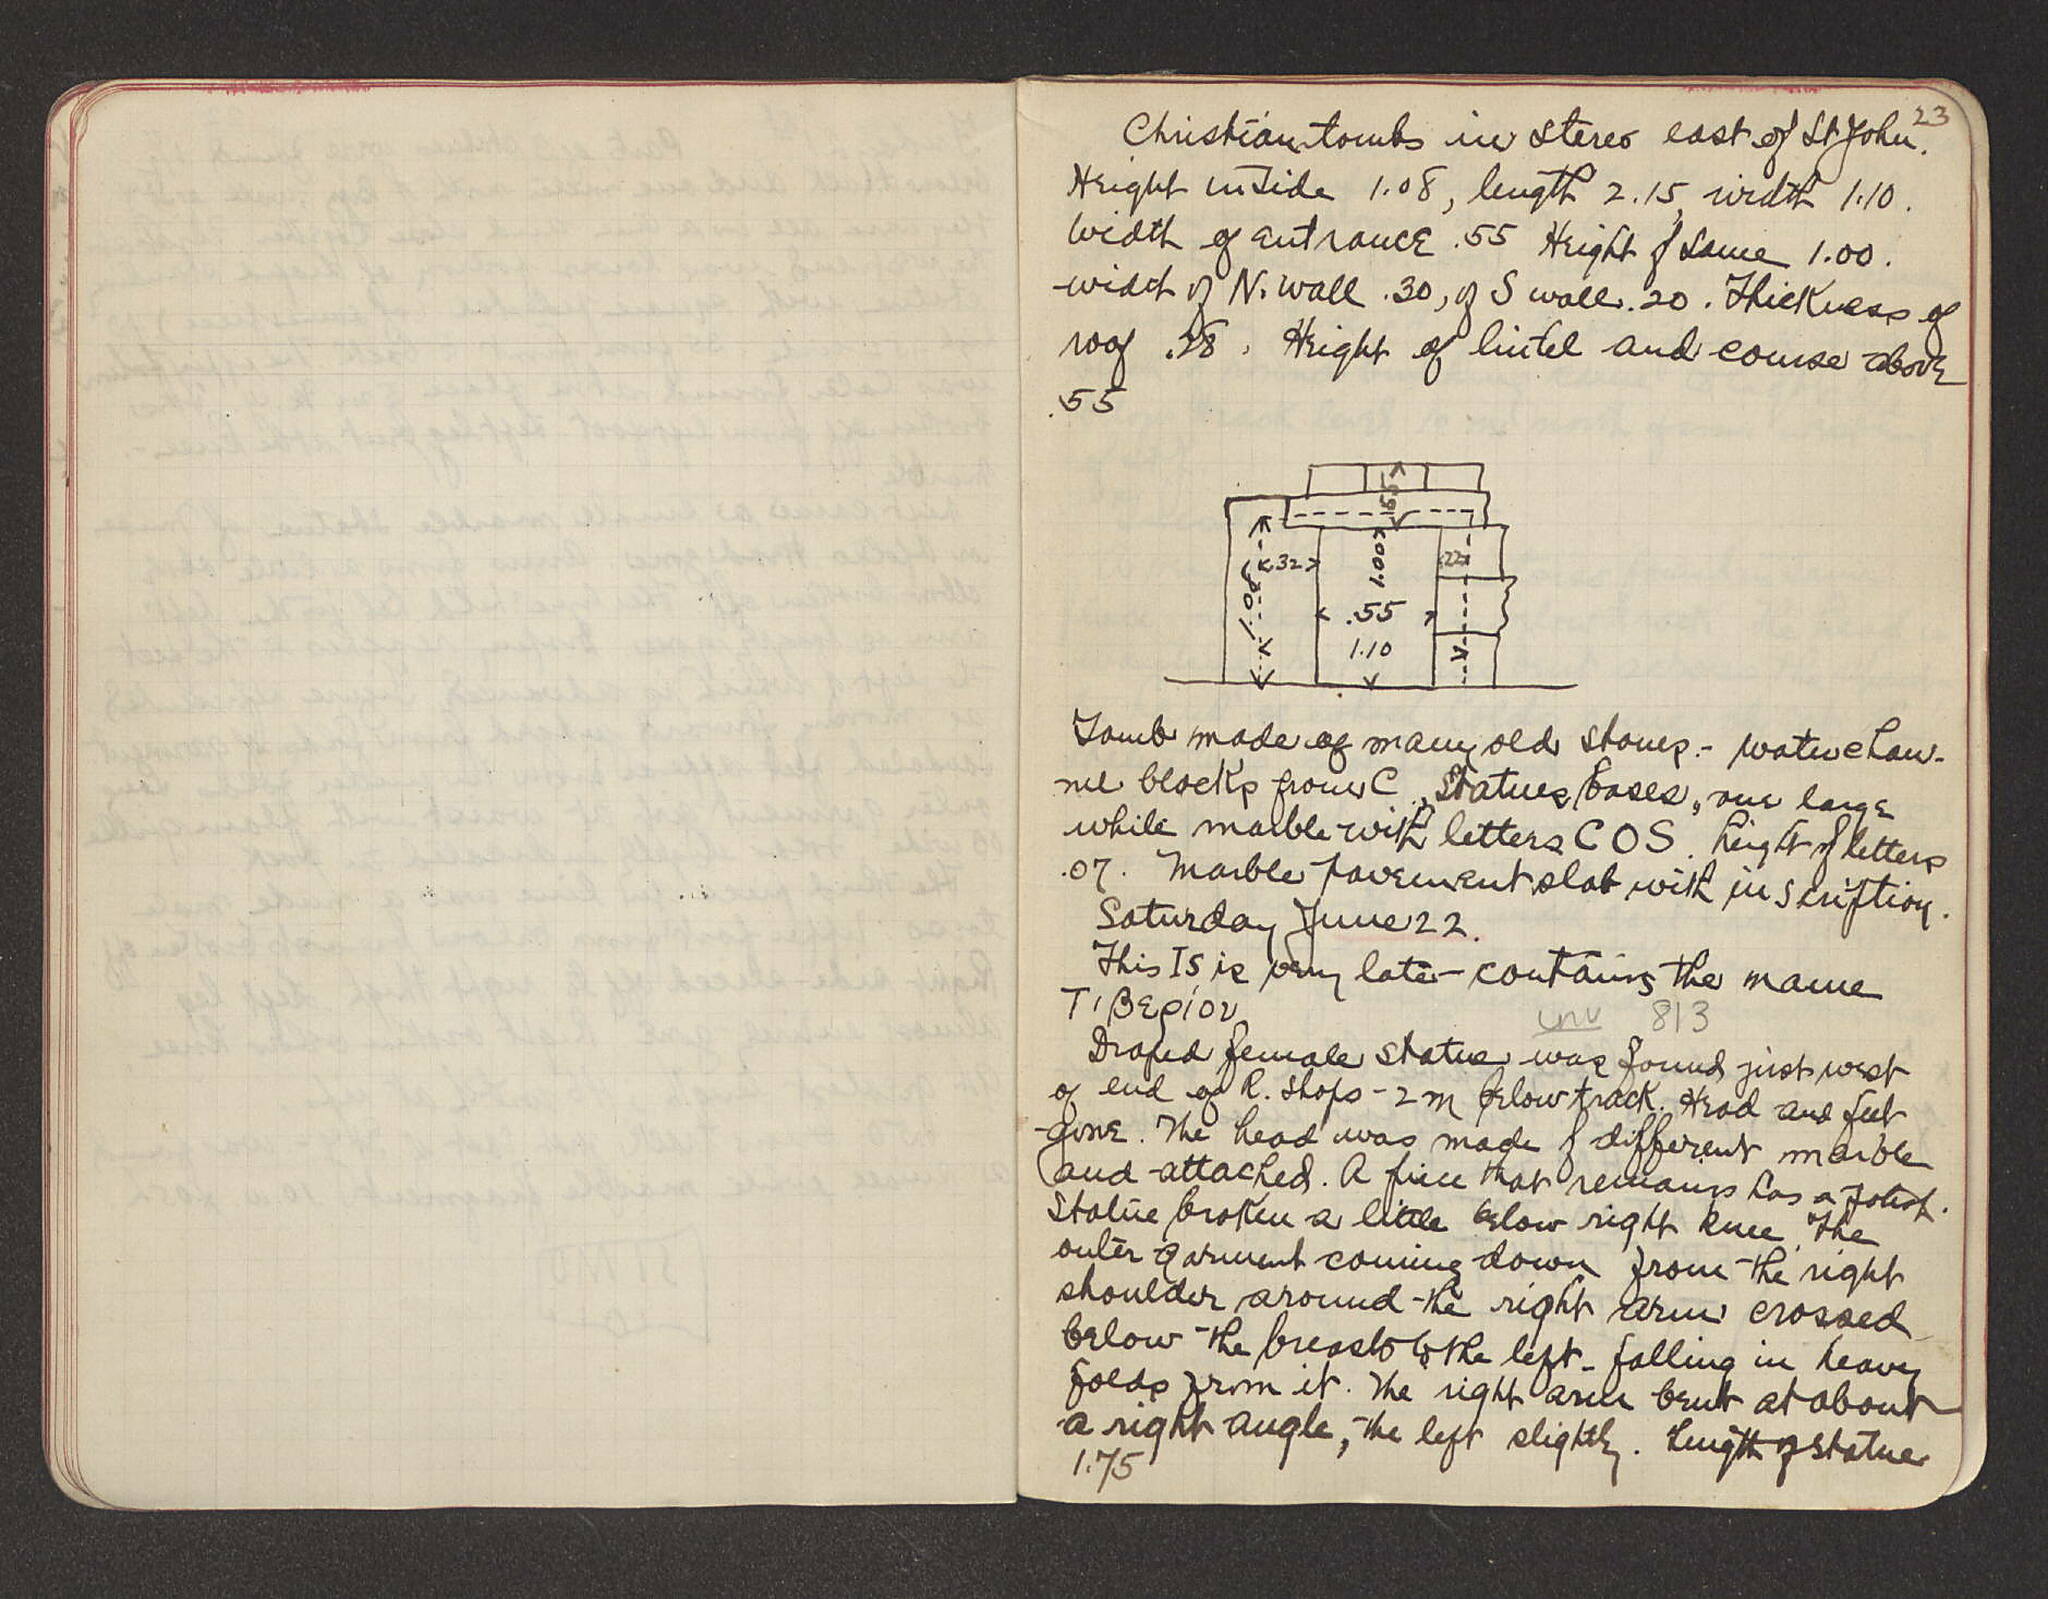 23
Christian tombs in stereo east of St John.
Height inside 1.08, length 2.15, width 1.10.
Width of entrance .55 Height of same 1.00.
width of N. wall .30, of S wall .20. Thickness of
roof .28. Height of lintel and course above
.55
.55
.32
1.00
.22
1.08
.55
1.10
Tomb made of many old stones - water chan-
nel blocks from C, Statues bases, one large
white marble with letters COS. height of letters
.07. Marble pavement slab with inscription.
Saturday June 22.
This IS is very late - contains the name
Τιβερίου
inv 813
Draped female statue was found just west
of end of R. Shops - 2 m below track. Head and feet
gone. The head was made of different marble
and attached. A piece that remains has a polish.
Statue broken a little below right knee. The
outer garment coming down from the right
shoulder around the right arm crossed
below the breast to the left - falling in heavy
folds from it. The right arm bent at about
a right angle, the left slightly. Length of statue
1.75